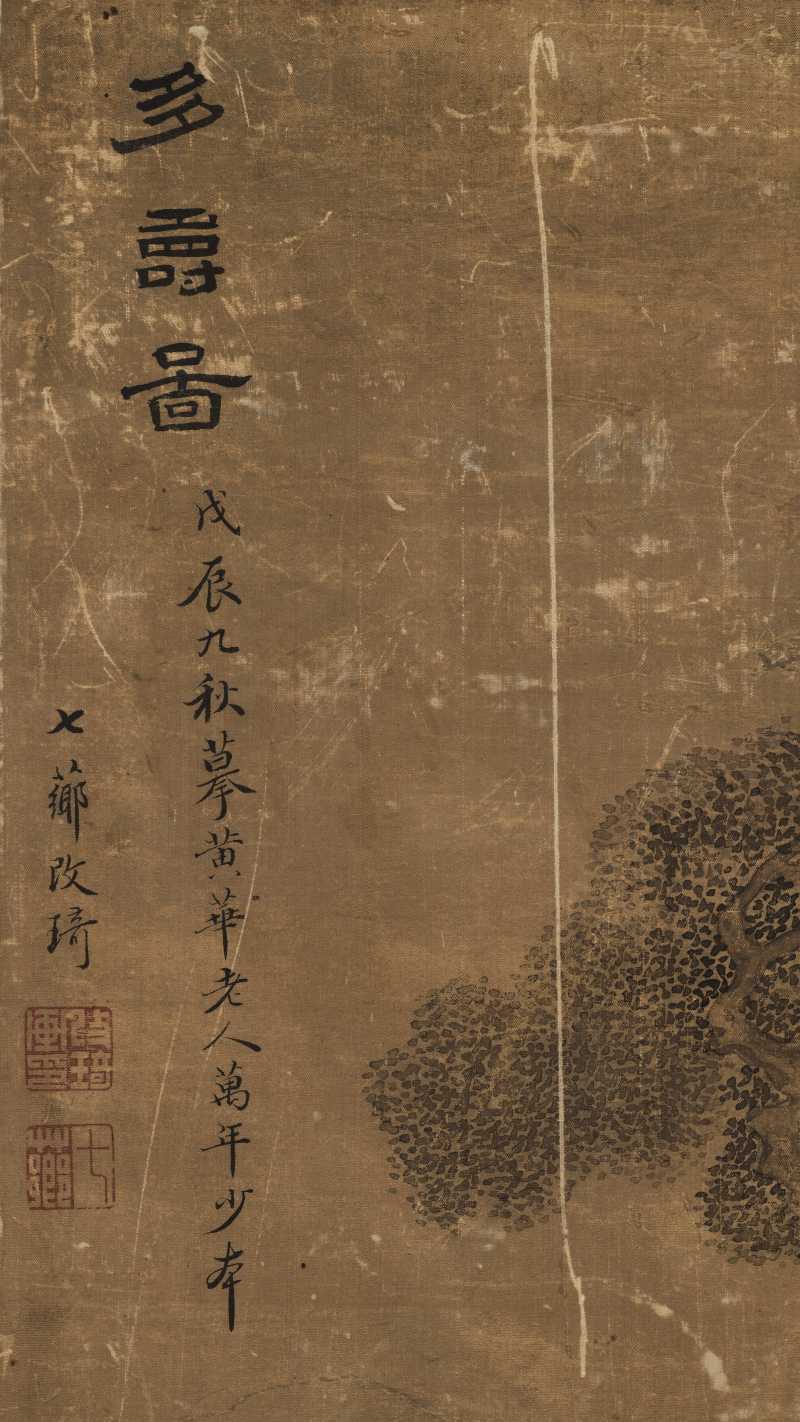 多壽啚
戊辰九秋摹黃華老人萬年少本
七薌改琦
改琦畫印
七薌